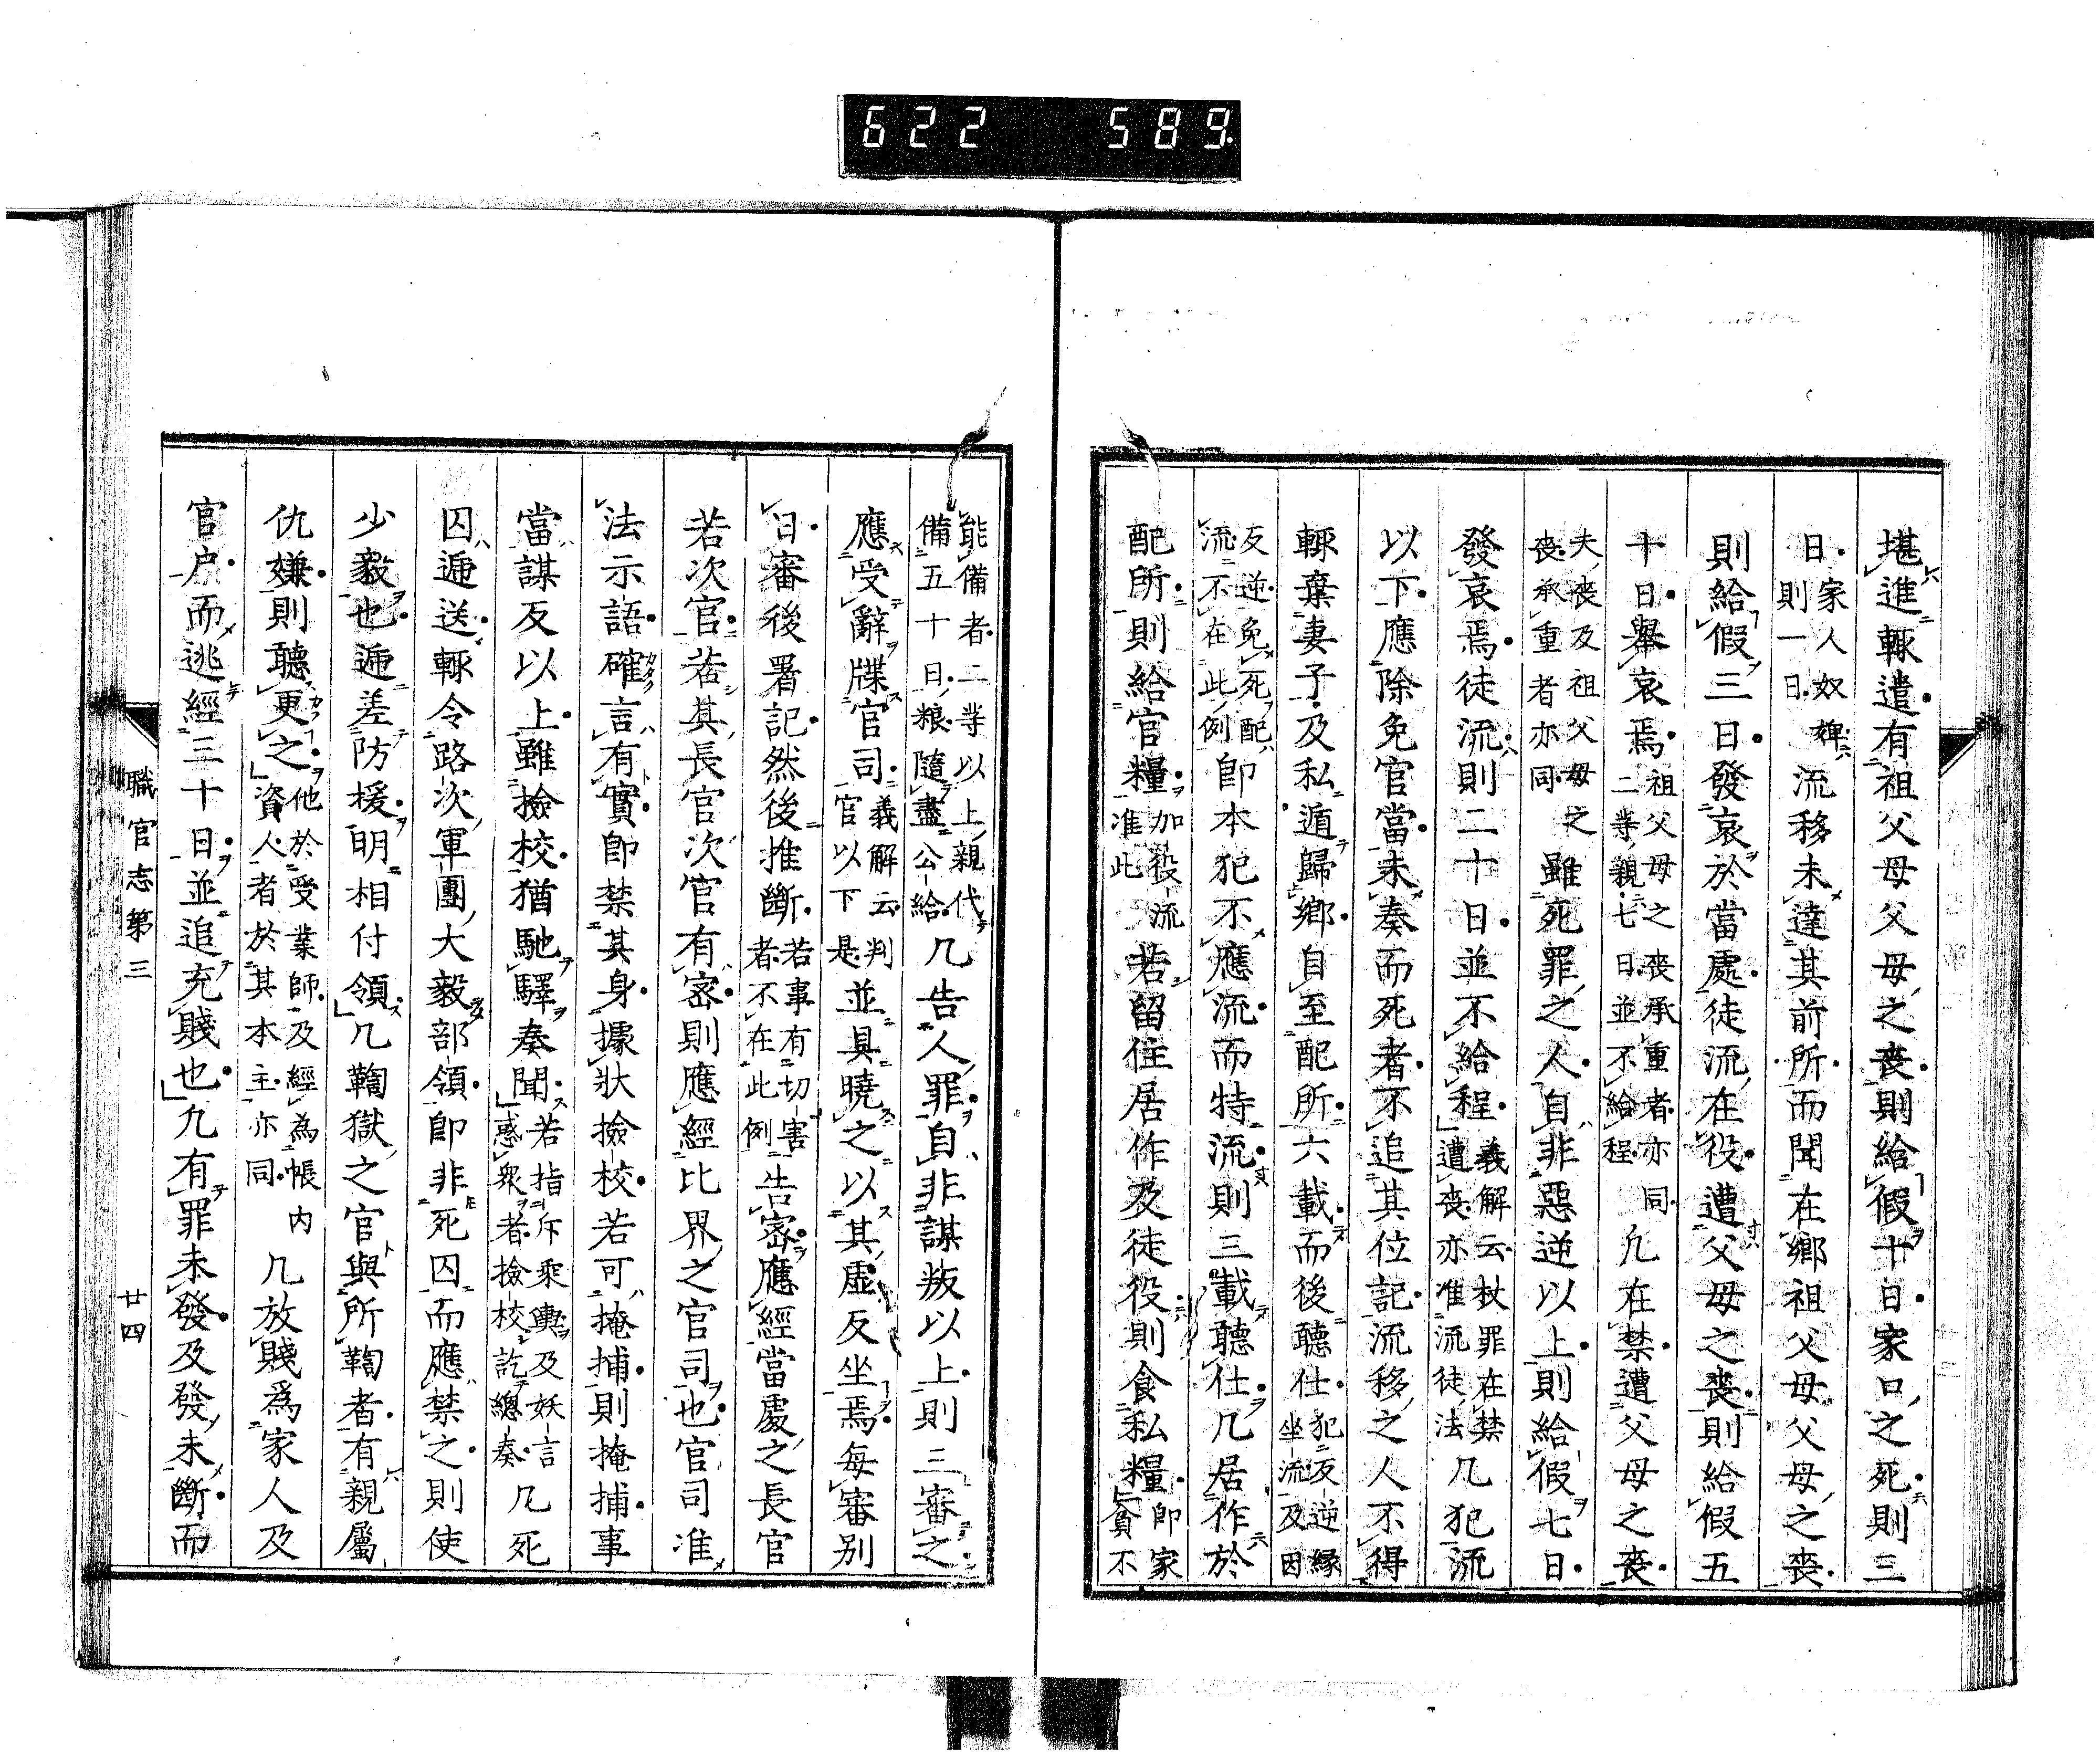 622 589
堪進輙遣有祖父母父母之喪則給假十日家口之死則三
日家人奴婢則一日流移未達其前所而聞在鄉祖父母父母之喪
則給假三日發哀於當處徒流在役遭父母之喪則給假五
十日舉哀焉祖父母之喪承重者亦同二等親七日並不給程凢在禁遭父母之喪
夫喪及祖父母之喪承重者亦同雖死罪之人自非惡逆以上則給假七日
發哀焉徒流則二十日並不給程義解云杖罪在禁遭喪亦准流徒法凢犯流
以下應除免官當未奏而死者不追其位記流移之人不得
輙棄妻子及私遁歸鄉自至配所六載而後聽仕犯反逆緣坐流及因
反逆免死配流不在此例即本犯不應流而特流則三載聽仕凢居作於
配所則給官糧加役流准此若留住居作及徒役則食私糧即家貧不
能備者二等以上親代備五十日粮隨盡公給凢告人罪自非謀叛以上則三審之
應受辭牒官司義解云判官以下是並具曉之以其虛反坐焉每審別
日審後署記然後推斷若事有切害者不在此例告密應經當處之長官
若次官若其長官次官有密則應經比界之官司也官司准
法示語確言有實即禁其身據狀撿校若可掩捕則掩捕事
當謀反以上雖撿校猶馳驛奏聞若指斥乘輿及妖言惑衆者撿校訖總奏凢死
囚逓送輙令路次軍團大毅部領即非死囚而應禁之則使
少毅也逓差防援明相付領凢鞫獄之官與所鞫者有親屬
仇嫌則聽更之他於受業師及經為帳內資人者於其本主亦同凢放賤爲家人及
官户而逃經三十日並追充賤也凢有罪未發及發未斷而
職官志第三
廿四